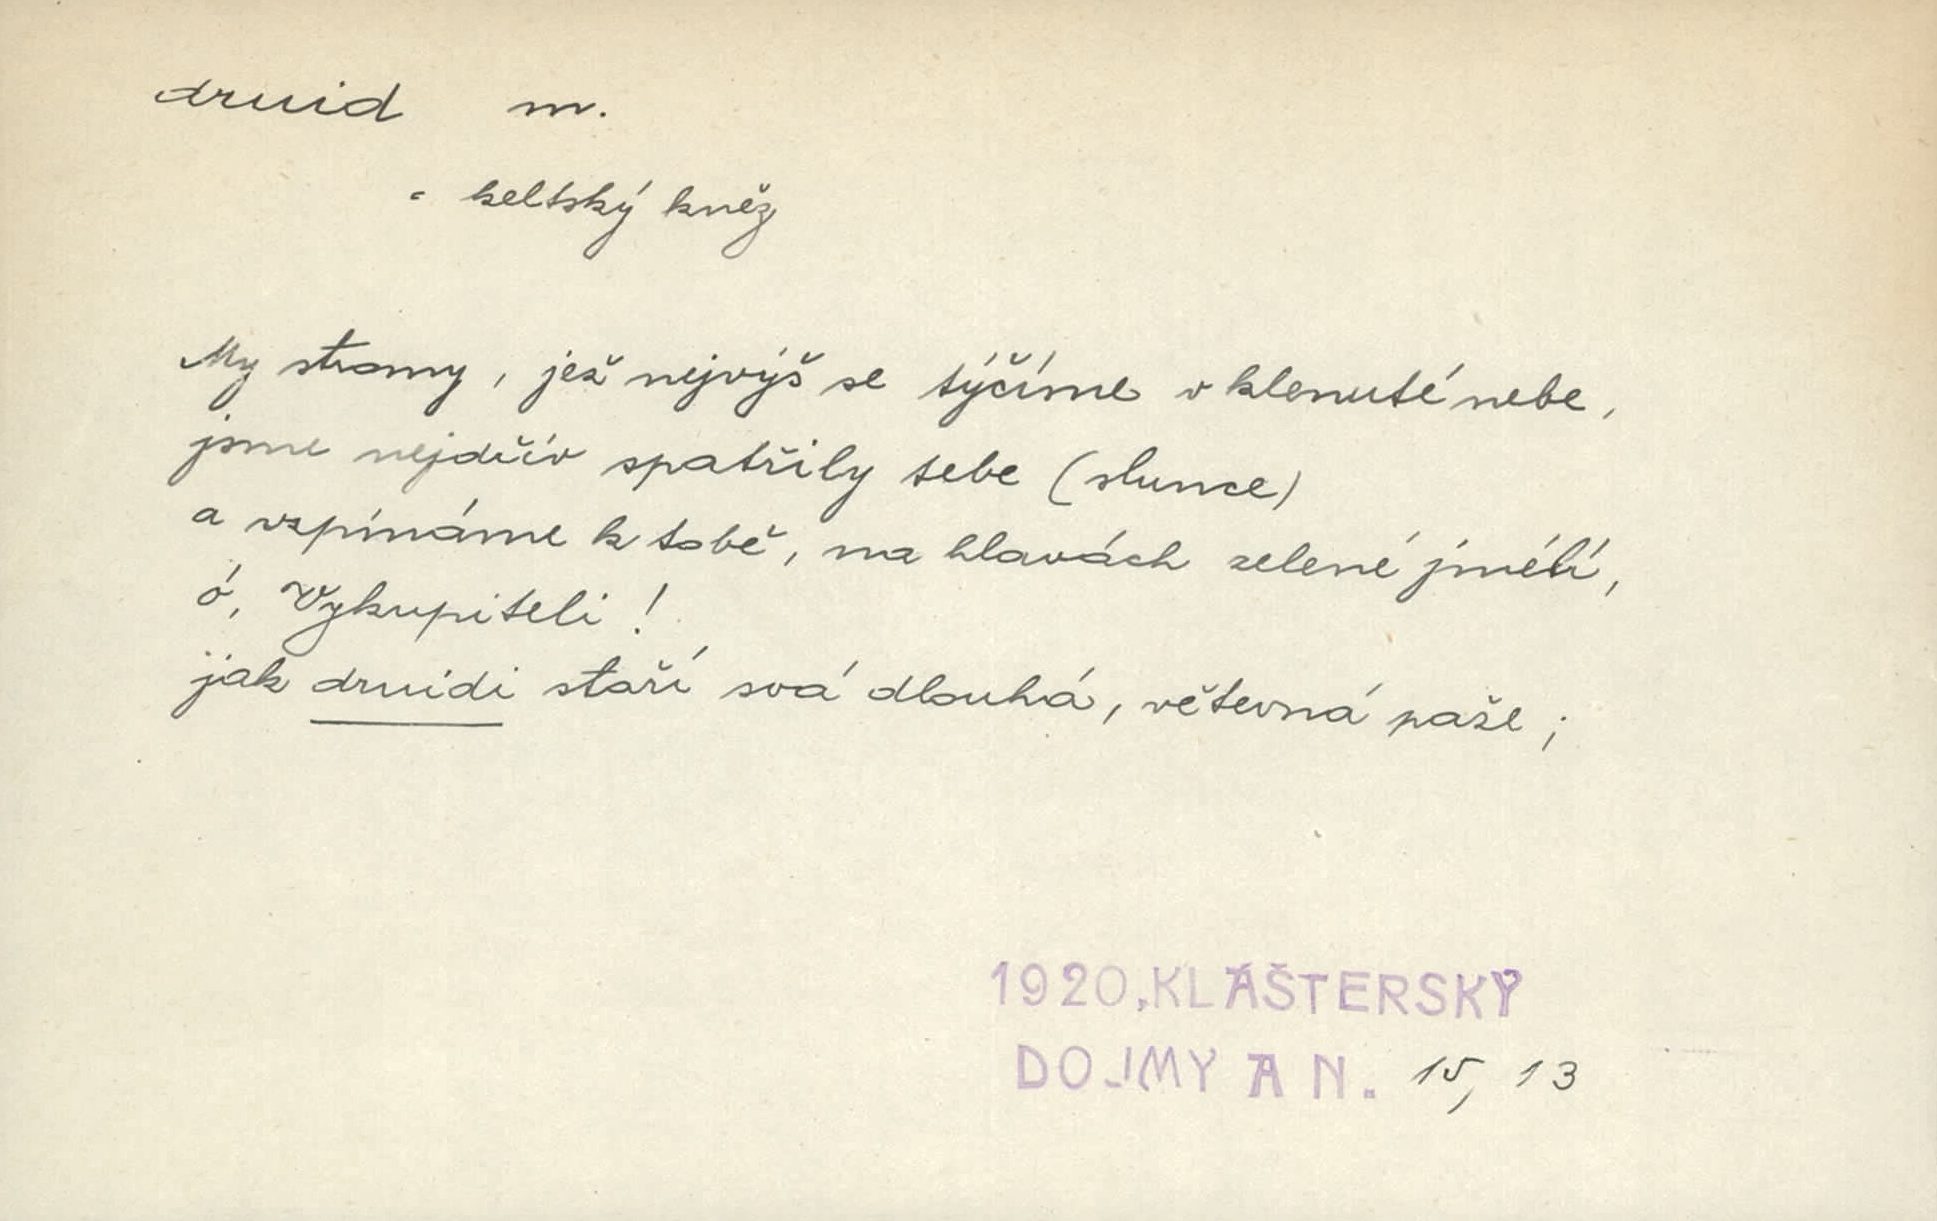 druid m.
= keltský kněz
My stromy, jež nejvýš se týčíme v klenuté nebe,
jsme nejdřív spatřily tebe (slunce)
a vzpínáme k tobě, na hlavách zelené jmélí,
ó, Vykupiteli!
jak druidi staří svá dlouhá, větevná paže;
1920, KLÁŠTERSKÝ
DOJMY A N. 15, 13